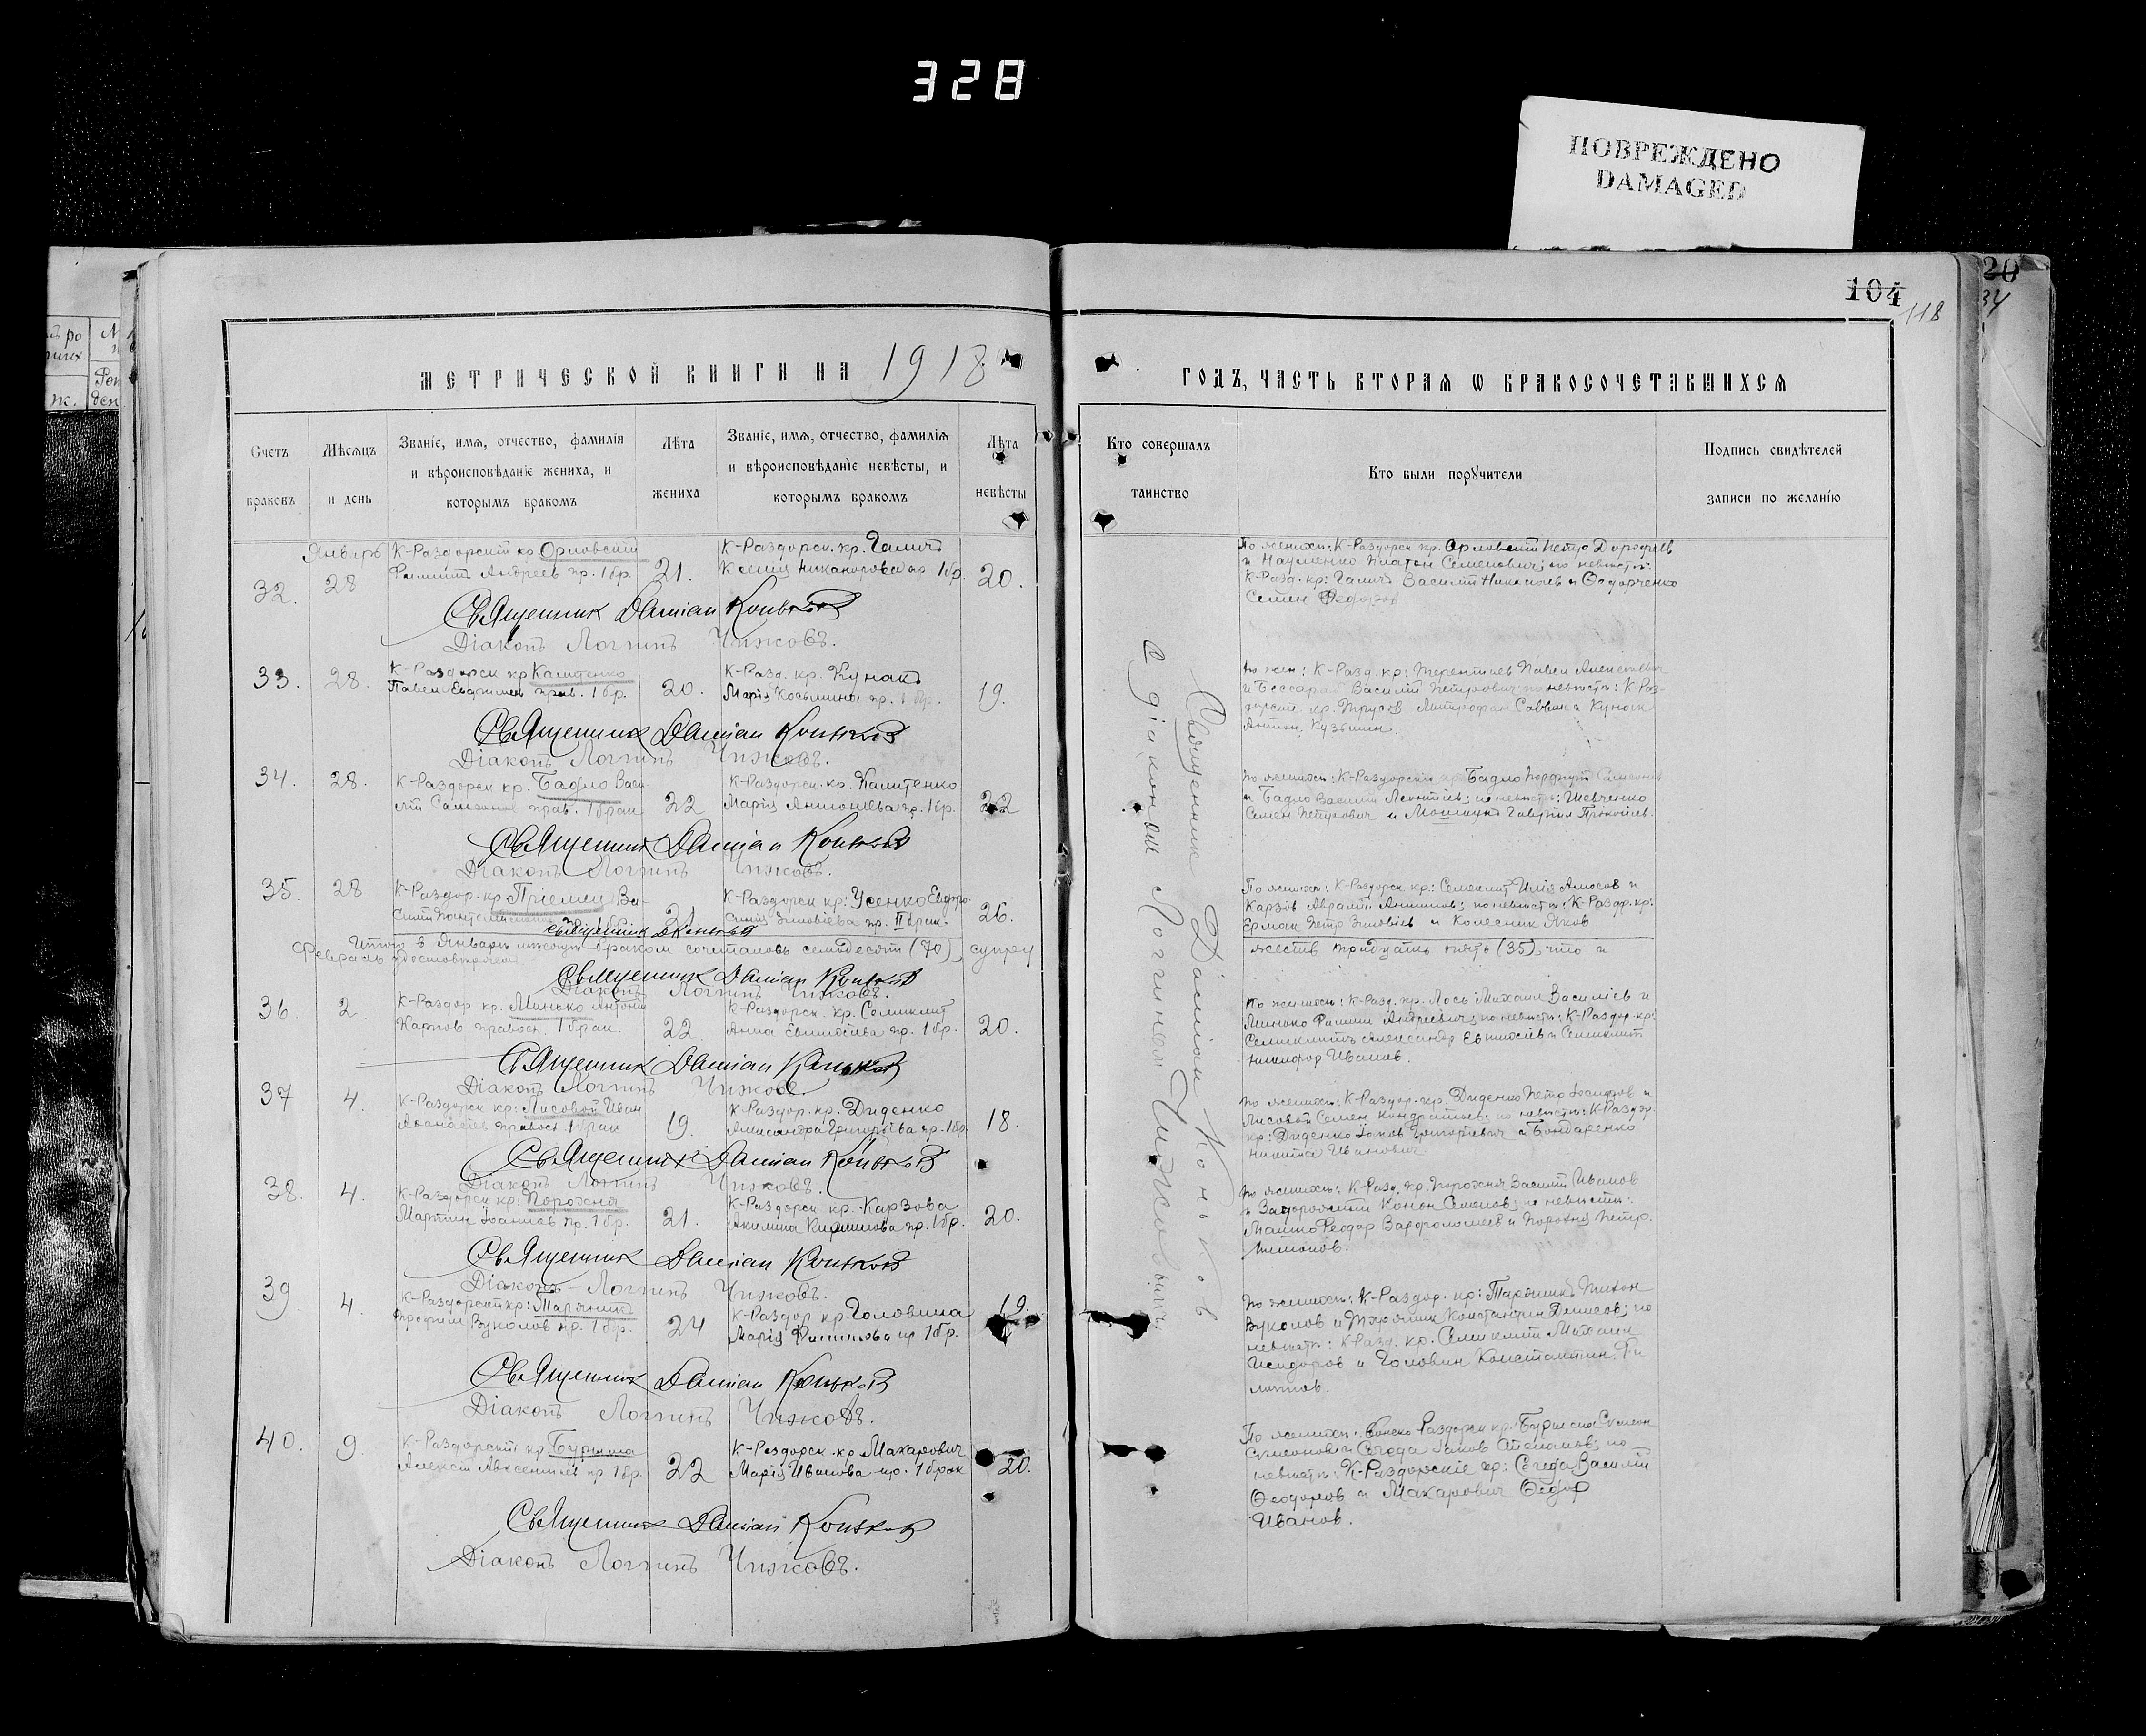 328
ПОВРЕЖДЕНО
DAMAGED
20
34
104
118
МЕТРИЧЕСКОЙ КНИГИ НА 1918
ГОДЪ, ЧАСТЬ ВТОРАЯ Ѡ БРАКОСОЧЕТАВШИХСЯ
Счетъ
браковъ
Мѣсяцъ
и день
Званіе, имя, отчество, фамилія
и вѣроисповѣданіе жениха, и
которымъ бракомъ
Лѣта
жениха
Званіе, имя, отчество, фамилія
и вѣроисповѣданіе невѣсты, и
которымъ бракомъ
Лѣта
невѣсты
Кто совершалъ
таинство
Кто были порꙋчители
Подпись свидѣтелей
записи по желанію
Январь
32.
28
К-Раздорскій кр. Орловскій
Филиппъ Андреев пр. 1 бр.
21.
К-Раздорск. кр. Галичъ
Никанорова пр. 1 бр.
20.
По женихѣ: К-Раздорск кр. Орловскій Петр Дорофеев
и Науменко Платон Семенович; по невѣстѣ:
К-Разд. кр: Галичъ Василій и Федорченко
Семен Федоров
Священник Damian Коньков
Діаконъ Логгинъ Чижовъ.
33.
28.
К-Раздорск кр Калитенко
Павел прав. 1 бр.
20.
К-Разд. кр. Кунакъ
Марія Козьмина пр. 1 бр.
19.
По жен: К-Разд. кр: Терентиев Павел Алексеевич
и Бессараб Василій Петрович по невѣстѣ: К-Раз-
дорскій кр. Трусов Митрофан Саввич и Кунак
Антон Кузьмин.
Священник Damian Коньков
Діаконъ Логгинъ Чижовъ.
34.
28.
К-Раздорск кр. Бадло Васи-
лій Самсонов прав. 1 брак
22
К-Раздорск. кр. Калитенко
Марія пр. 1 бр.
22
По женихѣ: К-Раздорскій кр Бадло Самсонов
и Бадло Василій Леонтіев; по невѣстѣ: Шевченко
Семен Петрович и Гавриил Прокопіев.
Священник Damian Коньков
Діаконъ Логгинъ Чижовъ.
35.
28
К-Раздор. кр Пріемец Ва-
21
К-Раздорск кр: Усенко Евфро-
синія Зиновіева пр. II брак.
26.
По женихѣ: К-Раздорск кр.: Семеклит Илія Амосов и
Карзов Аврамій по невѣстѣ: К-Раздр. кр:
Ермак Петр Зиновіев и Колесник Яков
Священник Д Коньков
Итого в Январѣ мѣсяцѣ браком сочеталось семьдесят (70), супру
жеств тридцать пять (35), что и
Февраль удостовѣряем
Священник Damian Коньков
Діаконъ Логгинъ Чижовъ.
36.
2.
К-Раздор кр. Минько Антоній
Карпов правосл. 1 брак.
22
К-Раздорск. кр. Семиклит
Анна пр. 1 бр.
20.
По женихѣ: К-Разд. кр. Лось Михаил Василіев и
Минько Филипп Андреевич; по невѣстѣ: К-Раздор кр:
Семиклитъ Александр и Семиклит
Никифор Иванов.
Священник Damian Коньков
Діаконъ Логгинъ Чижовъ.
37
4.
К-Раздорск кр: Лисовой Иван
правосл. 1 брак
19.
К-Раздор. кр. Диденко
Александра Григорьева пр. 1 бр.
18.
По женихѣ: К-Раздор. кр. Диденко Петр и
Лисовой Семен Кондратьев; по невѣстѣ: К-Раздор.
кр: Диденко Іаков Григорьевич и Бондаренко
Никита Иванович
Священник Damian Коньков
Діаконъ Логгинъ Чижовъ.
38.
4.
К-Раздорск кр: Порохня
Мартин Іоаннов пр. 1 бр.
21.
К-Раздорск кр. Карзова
Акилина Кириллова пр. 1 бр.
20.
По женихѣ: К-Разд. кр. Порохня Василій Иванов
и Задорожній Конон Семенов; по невѣстѣ:
Феодор Варфоломеев и Порохня Петр.
Священник Damian Коньков
Діаконъ Логгинъ Чижовъ.
39
4.
К-Раздорскій кр:
Трофим Вуколов пр. 1 бр.
24
К-Раздор кр. Головина
Марія Филиппова пр 1 бр.
19.
По женихѣ: К-Раздор. кр: Тихон
Вуколов и Константин по
невѣстѣ: К-Разд. кр. Семиклит Михаил
Исидоров и Головин Константин Фи
липпов.
Священник Damian Коньков
Діаконъ Логгинъ Чижовъ.
40.
9.
К-Раздорскій кр Бурима
Алексій Авксентіев пр 1 бр.
22
К-Раздорск. кр Макарович
Марія Иванова пр. 1 брак
20.
По женихѣ: Конско Раздорск кр: Симеон
Симеонов и Сегеда Іаков по
невѣстѣ: К-Раздорскіе кр: Сегеда Василій
Феодоров и Макарович Федор
Иванов.
Священник Damian Коньков
Діаконъ Логгинъ Чижовъ.
Священник Даміан Коньков
с діаконом Логгином Чижовым.